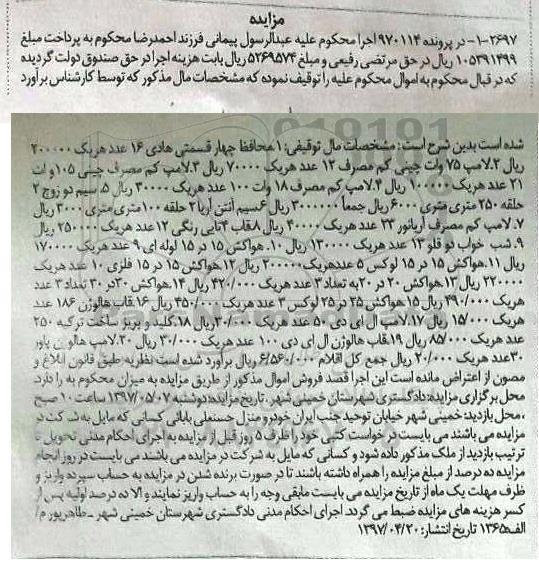 مزایده
۱-۲۶۹۷- در پرونده ۹۷۰۱۱۴ اجرا محکوم علیه عبدالرسول پیمانی فرزند احمدرضا محکوم به پرداخت مبلغ
۱۰۵۳۹۱۴۹۹ ریال در حق مرتضی رفیعی و مبلغ ۵۲۶۹۵۷۴ ریال بابت هزینه اجرا در حق صندوق دولت گردیده
که در قبال محکوم به اموال محکوم علیه را توقیف نموده که مشخصات مال مذکور که توسط کارشناس برآورد
شده است بدین شرح است: مشخصات مال توقیفی: ۱.محافظ چهار قسمتی هادی ۱۶ عدد هریک ۲۰۰۰۰۰
ریال ۲.لامپ ۷۵ وات چینی کم مصرف ۱۲ عدد هریک ۷۰۰۰۰ ریال ۳.لامپ کم مصرف چینی ۱۰۵ وات
۲۱ عدد هریک ۱۰۰۰۰۰ ریال ۴.لامپ کم مصرف ۱۸ وات ۱۰۰ عدد هریک ۳۰۰۰۰ ریال ۵.سیم دو زوج ۲
حلقه ۲۵۰ متری متری ۶۰۰۰ ریال جمعاً ۳۰۰۰۰۰۰ ریال ۶.سیم آنتن آریا ۲ حلقه ۱۰۰ متری متری ۳۰۰۰ ریال
۷.لامپ کم مصرف آریانور ۲۳ عدد هریک ۴۰۰۰۰ ریال ۸.قاب ۴تایی رنگی ۱۲ عدد هریک ۲۵۰۰۰۰ ریال
۹.شب خواب دو قلو ۱۳ عدد هریک ۱۳۰۰۰۰ ریال ۱۰.هواکش ۱۵ در ۱۵ لوله ای ۹ عدد هریک ۱۷۰۰۰۰
ریال ۱۱.هواکش ۱۵ در ۱۵ لوکس ۵ عدد هریک ۲۰۰۰۰۰ ریال ۱۲.هواکش ۱۵ در ۱۵ فلزی ۱۰ عدد هریک
۲۲۰۰۰۰ ریال ۱۳.هواکش ۲۰ در ۲۰ به تعداد ۳ عدد هریک ۴۲۰/۰۰۰ ریال ۱۴.هواکش ۳۰ در ۳۰ تعداد ۳ عدد
هریک ۴۹۰/۰۰۰ ریال ۱۵.هواکش ۲۵ در ۲۵ لوکس ۳ عدد هریک ۴۵۰/۰۰۰ ریال ۱۶.قاب هالوژن ۱۸۶ عدد
هریک ۱۵/۰۰۰ ریال ۱۷.لامپ ال ای دی ۵۰ عدد هریک ۲۰/۰۰۰ ریال ۱۸.کلید و پریز ساخت ترکیه ۲۵۰
عدد هریک ۸۵/۰۰۰ ریال ۱۹.قاب هالوژن ال ای دی ۱۰۰ عدد هریک ۳۰/۰۰۰ ریال ۲۰.لامپ هالوژن پاور
۳۰ عدد هریک ۲۰/۰۰۰ ریال جمع کل اقلام ۶/۵۶۰/۰۰۰ ریال برآورد شده است نظریه طبق قانون ابلاغ و
مصون از اعتراض مانده است این اجرا قصد فروش اموال مذکور از طریق مزایده به میزان محکوم به را دارد.
محل برگزاری مزایده: دادگستری شهرستان خمینی شهر. تاریخ مزایده: دوشنبه ۱۳۹۷/۰۵/۰۷ ساعت ۱۰ صبح
، محل بازدید: خمینی شهر خیابان توحید جنب ایران خودرو منزل حسنعلی بابائی کسانی که مایل به شرکت در
مزایده می باشند می بایست درخواست کتبی خود را ظرف ۵ روز قبل از مزایده به اجرای احکام مدنی تحویل تا
ترتیب بازدید از ملک مذکور داده شود و کسانی که مایل به شرکت در مزایده می باشند می بایست در روز انجام
مزایده ده درصد از مبلغ مزایده را همراه داشته باشند تا در صورت برنده شدن در مزایده به حساب سپرده واریز و
ظرف مهلت یک ماه از تاریخ مزایده می بایست مابقی وجه را به حساب واریز نمایند و الا ده درصد اولیه پس از
کسر هزینه های مزایده ضبط می گردد. اجرای احکام مدنی دادگستری شهرستان خمینی شهر ـ طاهرپور م/
الف ۱۳۶۵ تاریخ انتشار: ۱۳۹۷/۰۴/۲۰